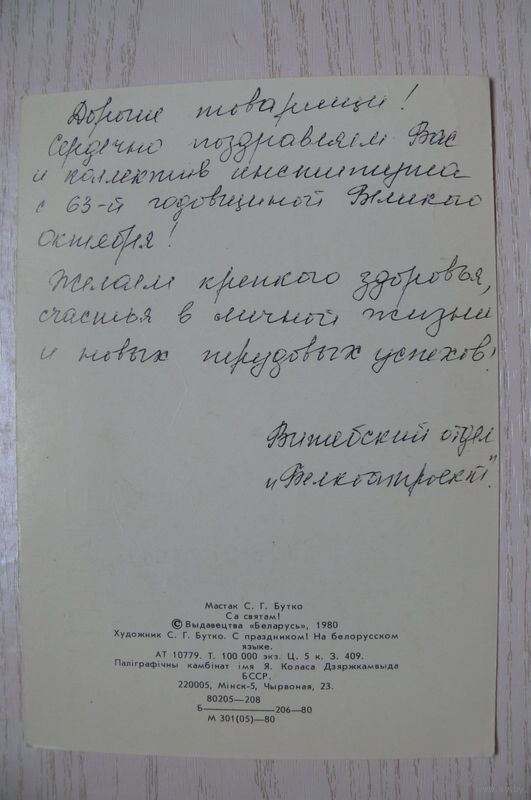 Дорогие товарищи!
Сердечно поздравляем Вас
и коллектив института
с 63-й годовщиной Великого
октября!
Желаем крепкого здоровья,
счастья в личной жизни
и новых трудовых успехов!
Витебский отдел
"Белкоопроект".
Мастак С. Г. Бутко
Са святам!
© Выдавецтва «Беларусь», 1980
Художник С. Г. Бутко. С праздником! На белорусском
языке.
АТ 10779. Т. 100 000 экз. Ц. 5 к. З. 409.
Паліграфічны камбінат імя Я. Коласа Дзяржкамвыда
БССР.
220005, Мінск-5, Чырвоная, 23.
80205—208
Б————206—80
М 301(05)—80